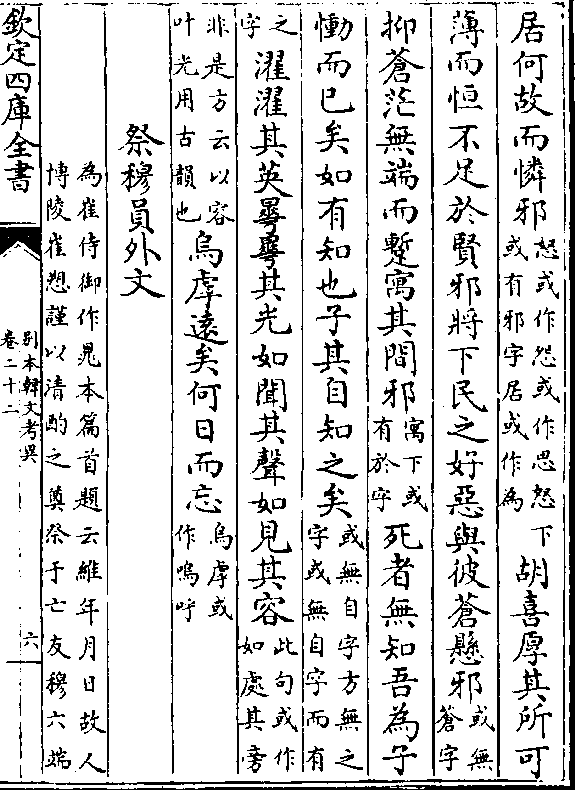 居何故而憐邪恕或作怨或作思恕下或有邪字居或作為胡喜厚其所可
薄而恒不足於賢邪將下民之好惡與彼蒼懸邪或無蒼字
抑蒼茫無端而蹔寓其間邪寓下或有於字死者無知吾為子
慟而已矣如有知也子其自知之矣或無自字方無之字或無自字而有
之字濯濯其英曅曅其光如聞其聲如見其容此句或作如處其旁
非是方云以容叶光用古韻也烏虖遠矣何日而忘烏虖或作嗚呼
祭穆員外文
為崔侍御作晁本篇首題云維年月日故人
博陵崔愬謹以清酌之奠祭于亡友穆六端
欽定四庫全書
別本韓文考異
卷二十二
六